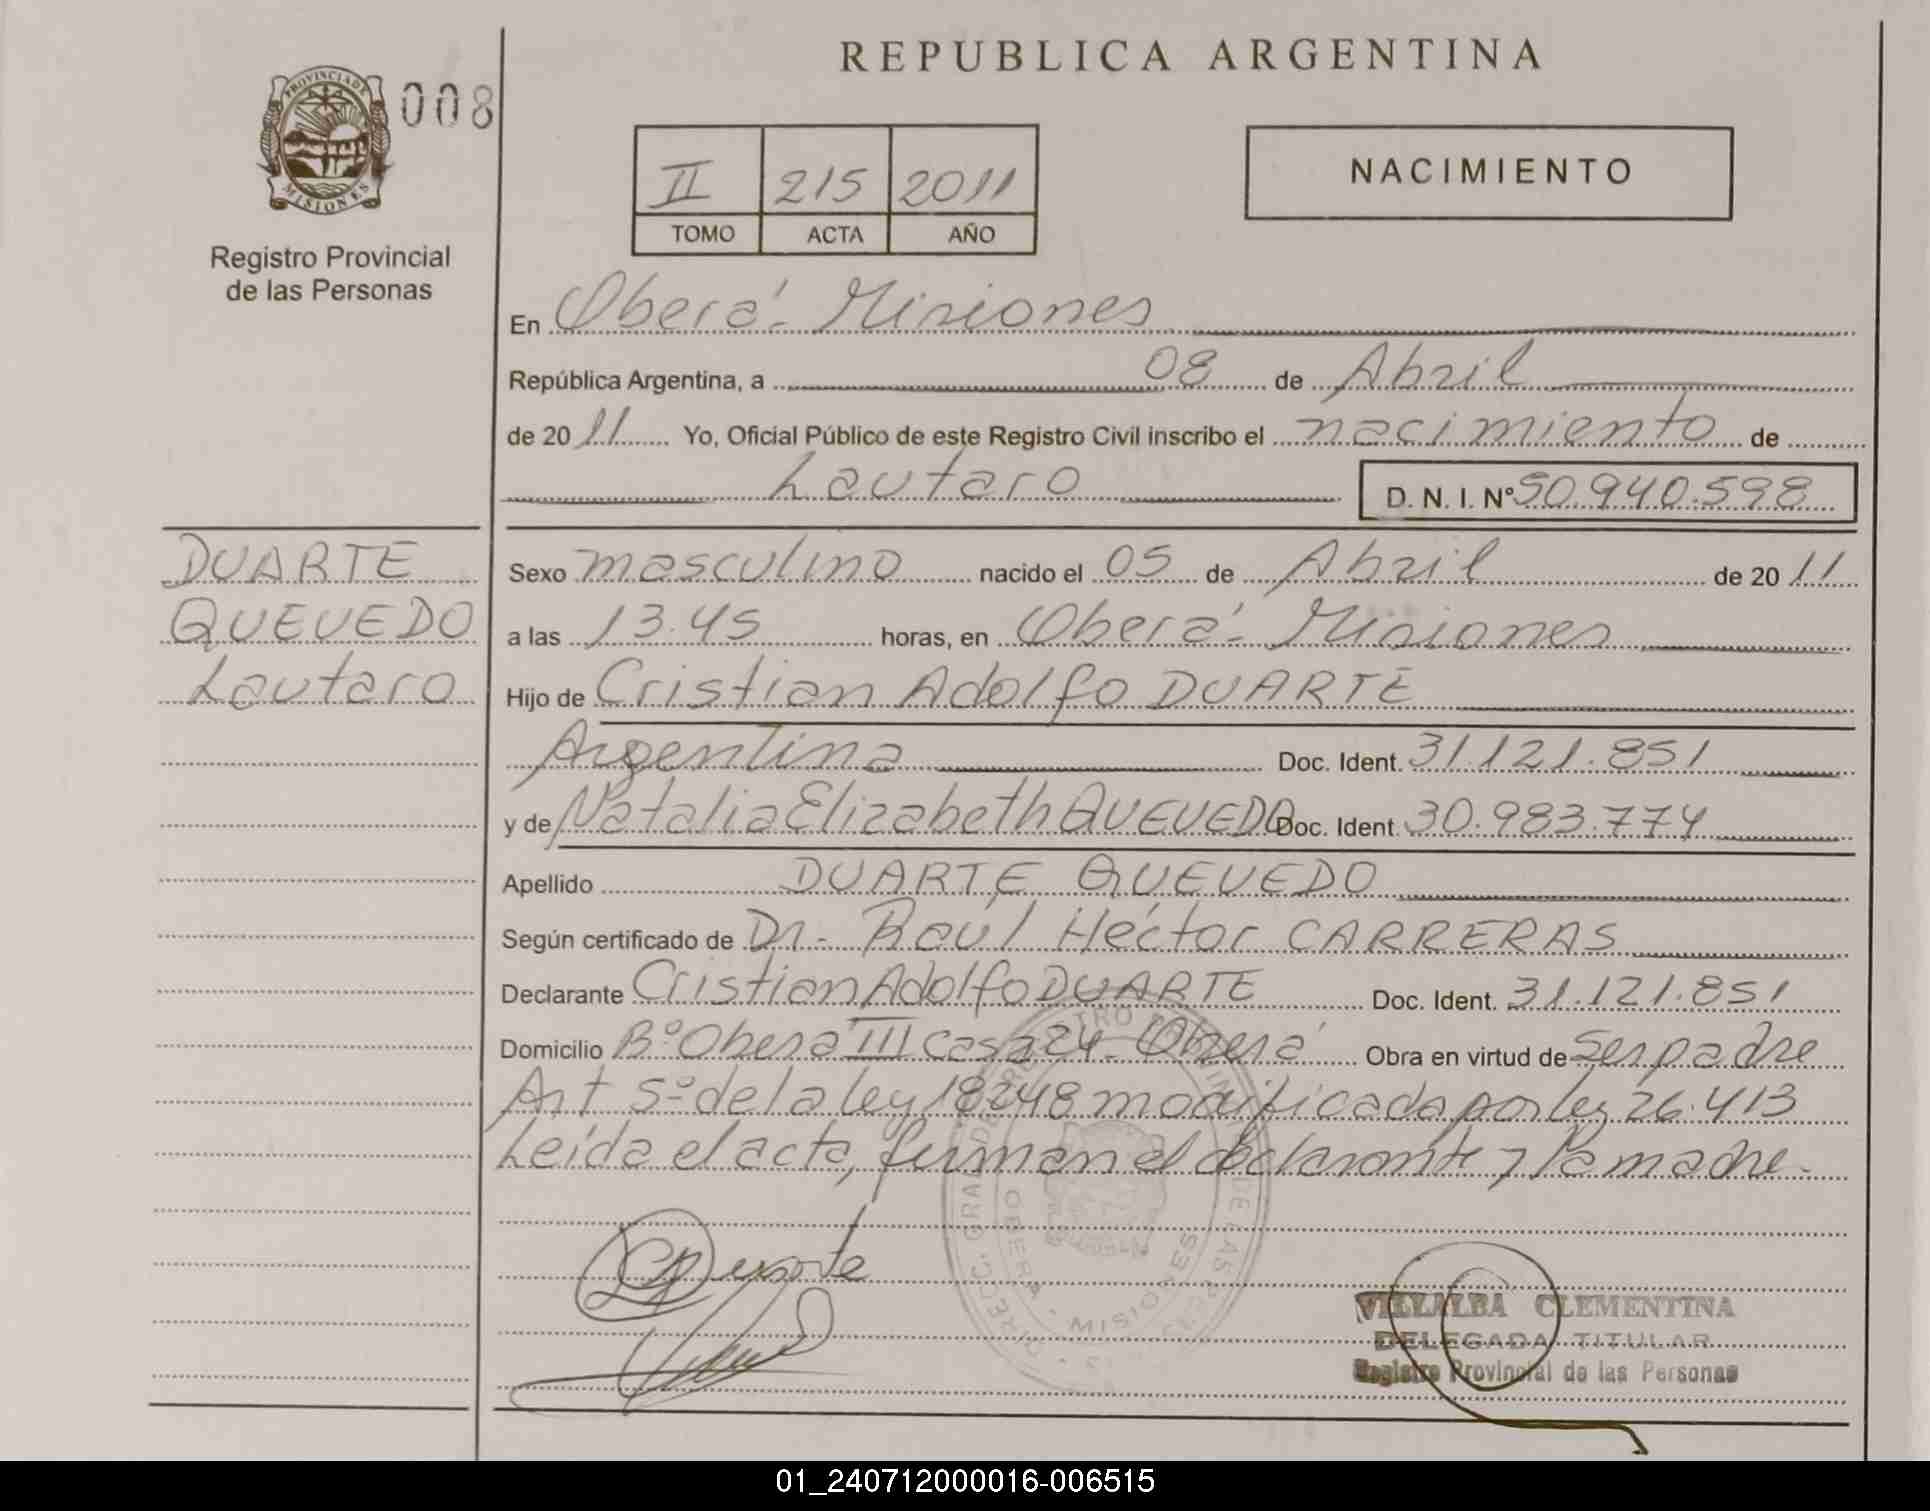 REPUBLICA ARGENTINA
PROVINCIA DE
MISIONES
008
Registro Provincial
de las Personas
II 215 2011
TOMO ACTA AÑO
NACIMIENTO
En Oberá - Misiones
República Argentina, a 08 de Abril
de 2011 Yo, Oficial Público de este Registro Civil inscribo el nacimiento de
Lautaro D. N. I. Nº 50.940.598
DUARTE
QUEVEDO
Lautaro
Sexo masculino nacido el 05 de Abril de 2011
a las 13.45 horas, en Oberá - Misiones
Hijo de Cristian Adolfo DUARTE
Argentina Doc. Ident. 31.121.851
y de Natalia Elizabeth QUEVEDO Doc. Ident. 30.983.774
Apellido DUARTE QUEVEDO
Según certificado de Dr. Raúl Héctor CARRERAS
Declarante Cristian Adolfo DUARTE Doc. Ident. 31.121.851
Domicilio Bº Oberá III casa 24 - Oberá Obra en virtud de ser padre
Art 5º de la ley 18248 modificada por ley 26.413
Leída el acta, firman el declarante y la madre.
Duarte
OBERA - MISIONES
VILLALBA CLEMENTINA
DELEGADA TITULAR
Registro Provincial de las Personas
01_240712000016-006515